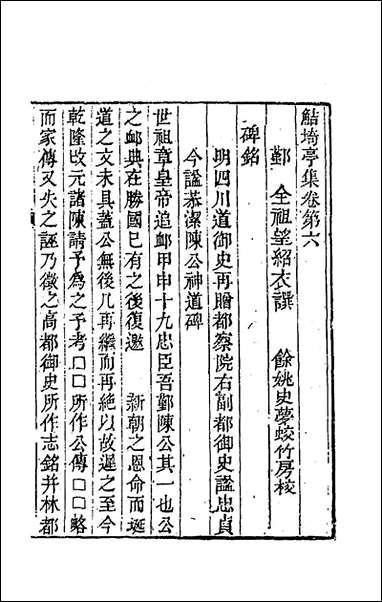 鮚埼亭集卷第六
鄞　全祖望紹衣譔　　餘姚史夢蛟竹房校
碑銘
明四川道御史再贈都察院右副都御史謚忠貞
今謚恭潔陳公神道碑
世祖章皇帝追䘏甲申十九忠臣吾鄞陳公其一也公
之䘏典在勝國已有之後復邀　　新朝之恩命而埏
道之文未具蓋公無後凡再繼而再絶以故遲之至今
乾隆改元諸陳請予為之予考□□所作公傳□□略
而家傳又失之誣乃徵之高都御史所作志銘并林都